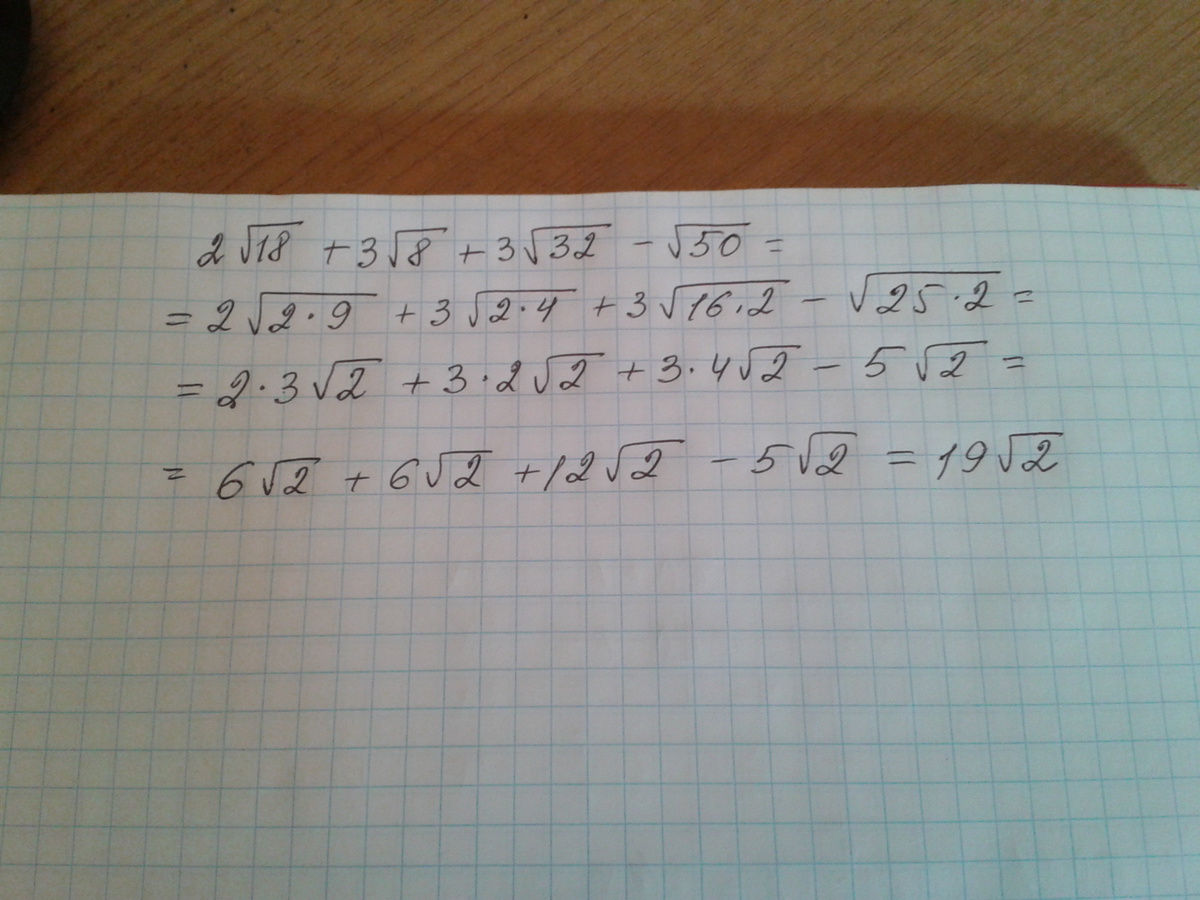 2√18 + 3√8 + 3√32 - √50 =
= 2√2·9 + 3√2·4 + 3√16·2 - √25·2 =
= 2·3√2 + 3·2√2 + 3·4√2 - 5√2 =
= 6√2 + 6√2 + 12√2 - 5√2 = 19√2